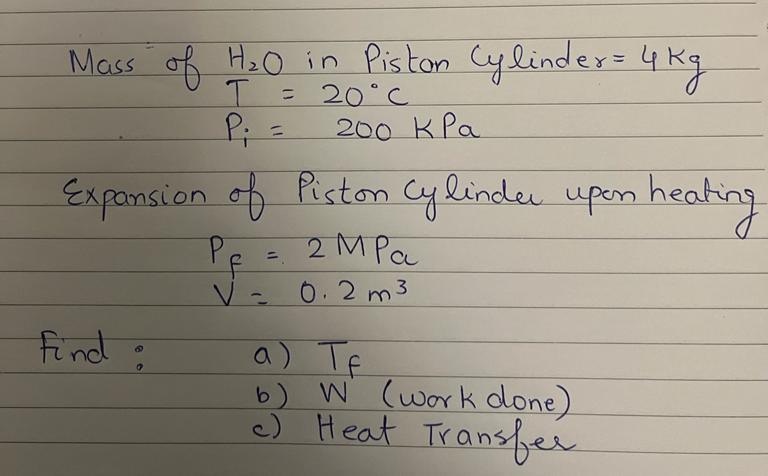 Mass of H₂O in Piston Cylinder = 4 Kg
T = 20°C
Pᵢ = 200 KPa
Expansion of Piston Cylinder upon heating
P_F = 2 MPa
V = 0.2 m³
Find : a) T_F
b) W (work done)
c) Heat Transfer